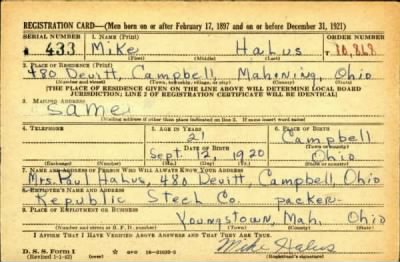 REGISTRATION CARD—(Men born on or after February 17, 1897 and on or before December 31, 1921)
SERIAL NUMBER 1. NAME (Print) ORDER NUMBER
433 Mike Halus 10,868
(First) (Middle) (Last)
2. PLACE OF RESIDENCE (Print)
480 Devitt, Campbell, Mahoning, Ohio
(Number and street) (Town, township, village, or city) (County) (State)
[THE PLACE OF RESIDENCE GIVEN ON THE LINE ABOVE WILL DETERMINE LOCAL BOARD
JURISDICTION; LINE 2 OF REGISTRATION CERTIFICATE WILL BE IDENTICAL]
3. MAILING ADDRESS
Same
[Mailing address if other than place indicated on line 2. If same insert word same]
4. TELEPHONE 5. AGE IN YEARS 6. PLACE OF BIRTH
21 Campbell
DATE OF BIRTH (Town or county)
Sept. 12, 1920 Ohio
(Exchange) (Number) (Mo.) (Day) (Yr.) (State or country)
7. NAME AND ADDRESS OF PERSON WHO WILL ALWAYS KNOW YOUR ADDRESS
Mrs. Paul Halus, 480 Devitt, Campbell, Ohio
8. EMPLOYER'S NAME AND ADDRESS
Republic Steel Co. packer
9. PLACE OF EMPLOYMENT OR BUSINESS
Youngstown, Mah, Ohio
(Number and street or R. F. D. number) (Town) (County) (State)
I AFFIRM THAT I HAVE VERIFIED ABOVE ANSWERS AND THAT THEY ARE TRUE.
D. S. S. Form 1
Mike Halus
(Registrant's signature)